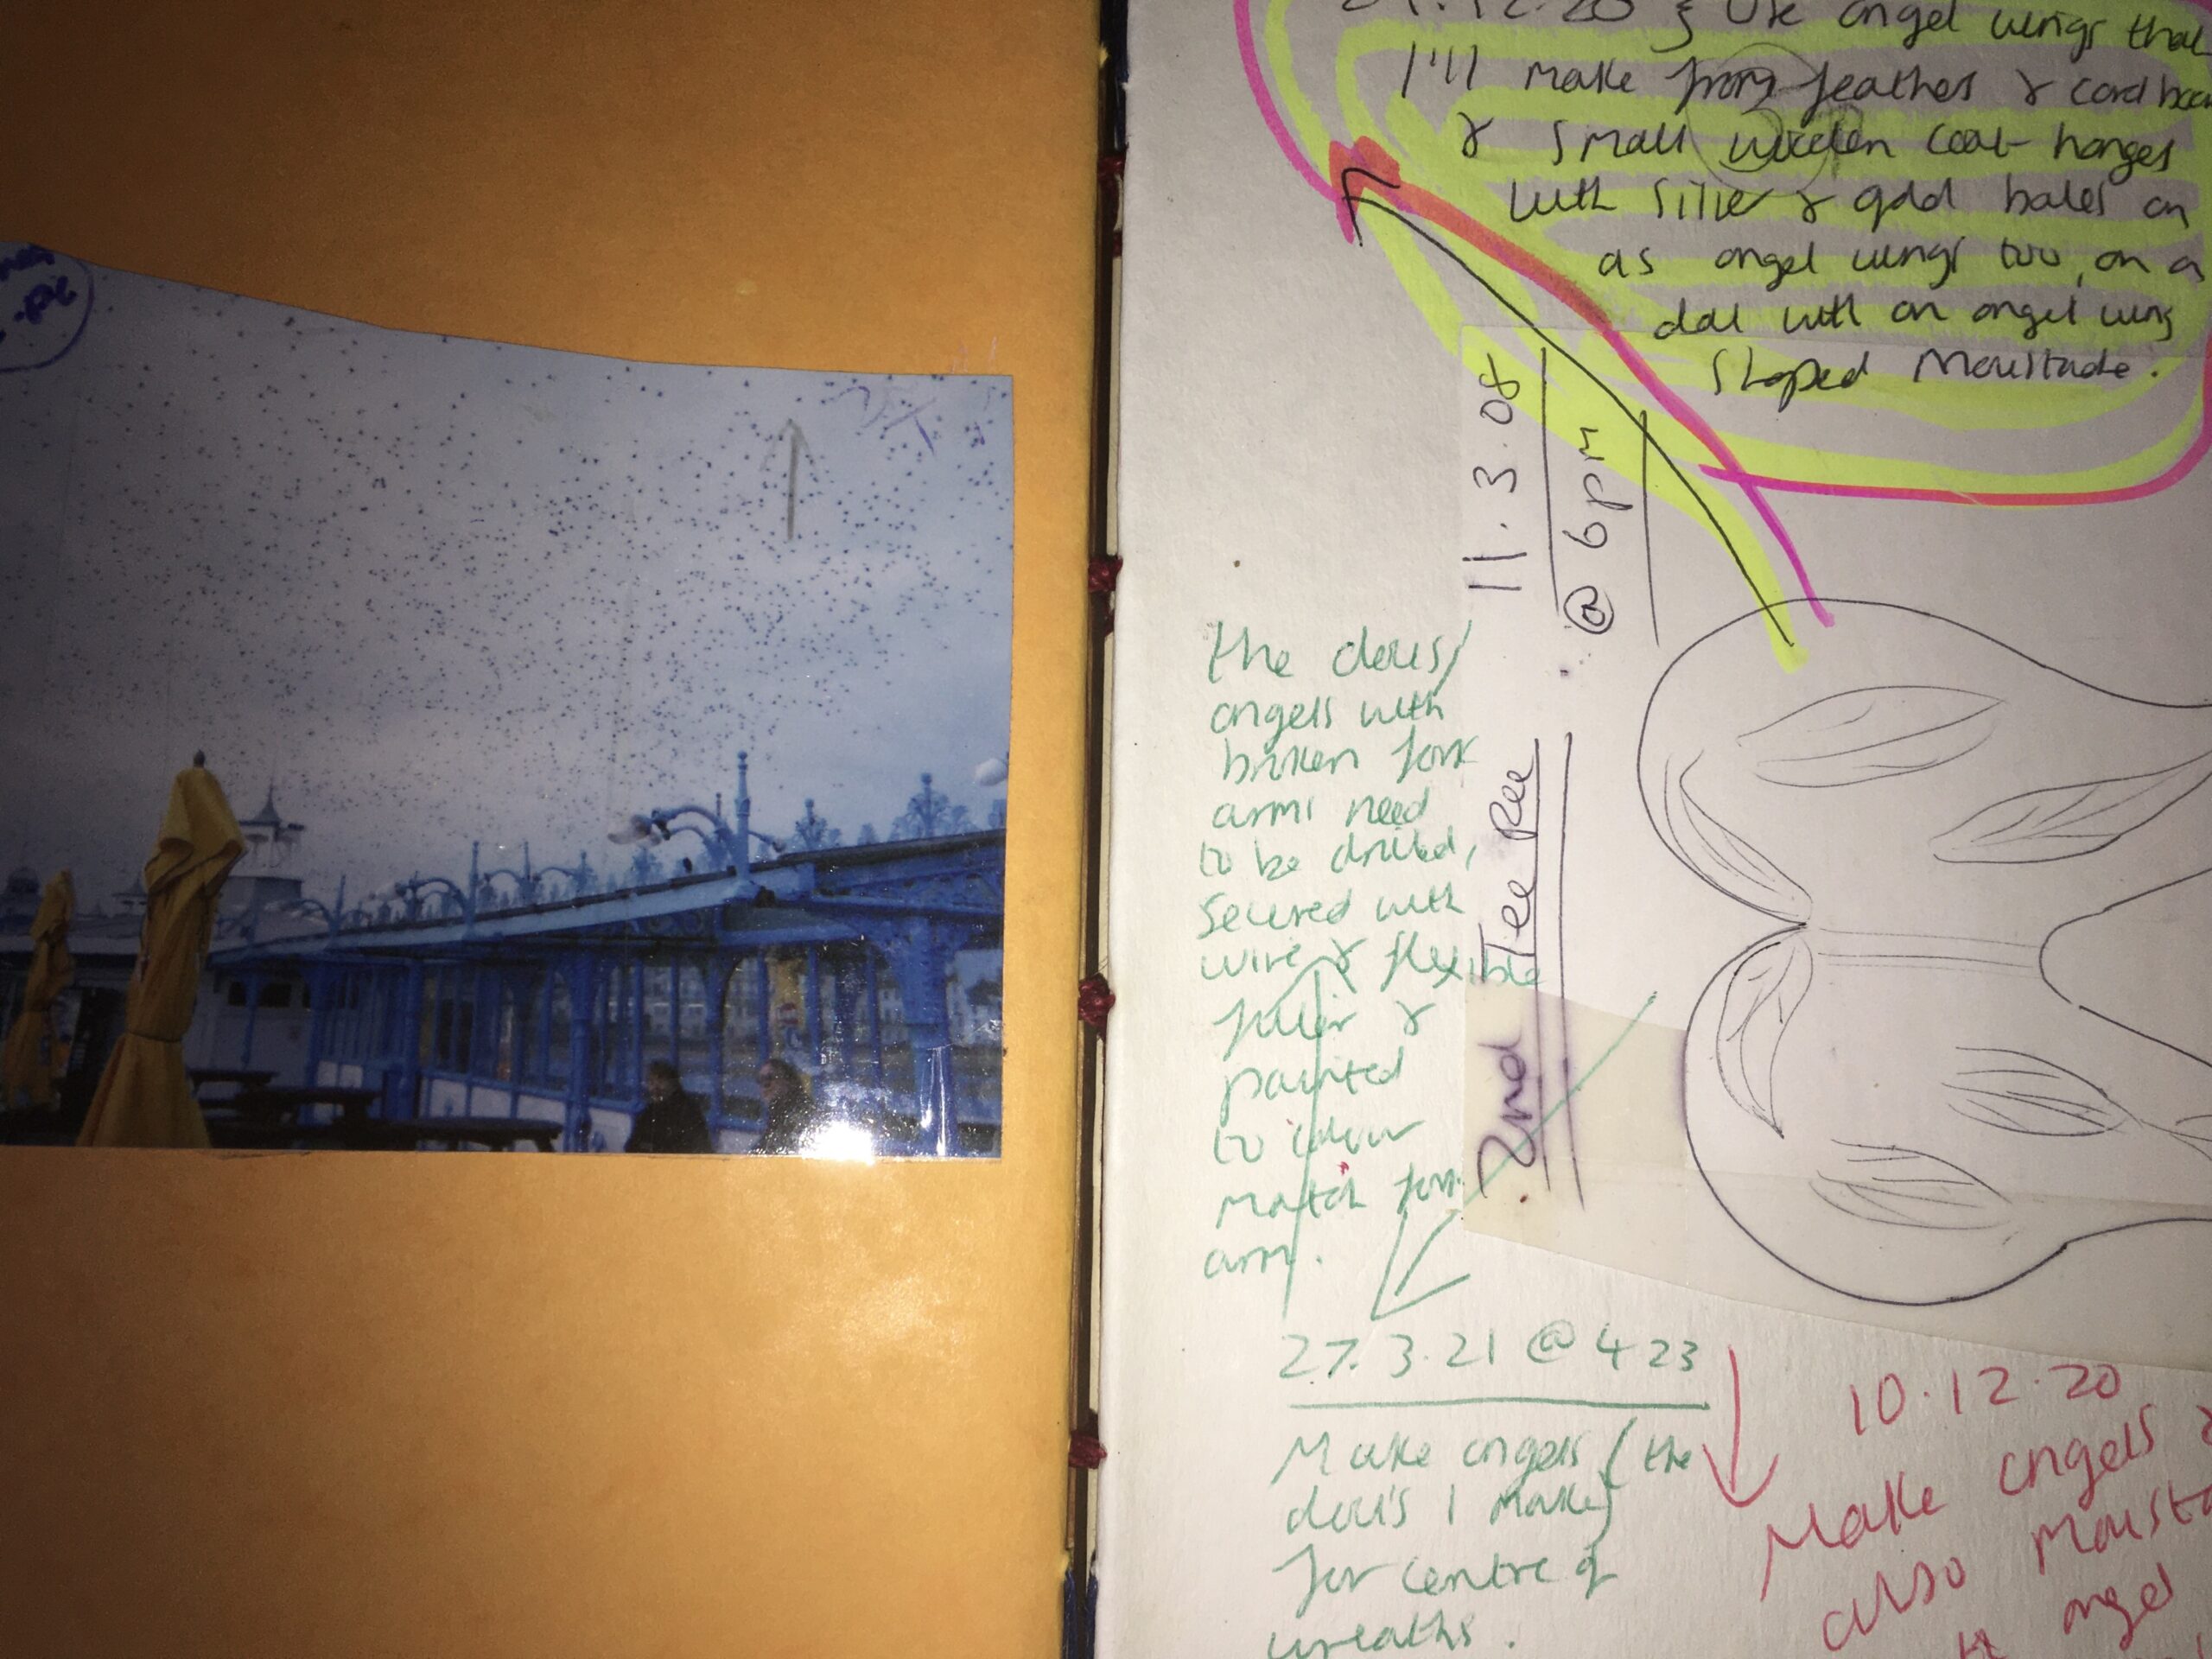 .12.20 } Use angel wings that
I'll make from feathers & cardboa
& small wooden coat-hanges
with silver & gold bales on
as angel wings too, on a
doll with an angel wing
shaped Moustache.
11.3.08
@ 6pm
2nd Tee Pee
the dolls/
angels with
broken fore
arms need
to be drilled,
secured with
wire & flexible
filler &
painted
to colour
match fore
arm.
27.3.21 @ 4 23
Make angels (the
doll's I make)
for centre of
wreaths.
10.12.20
Make angels &
also moust
angel